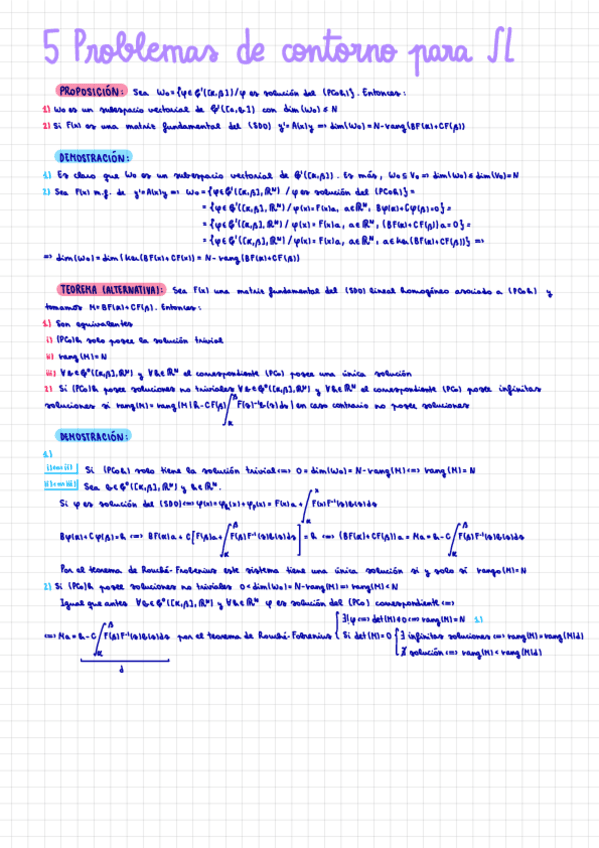 5 Problemas de contorno para SL
PROPOSICIÓN: Sea W₀={φ∈C¹([α,β])/φ es solución del (PCoh)}. Entonces:
1) W₀ es un subespacio vectorial de C¹([α,β]) con dim(W₀) ≤ N
2) Si F(x) es una matriz fundamental del (SDO) y'=A(x)y => dim(W₀)=N-rang(BF(α)+CF(β))
DEMOSTRACIÓN:
1) Es claro que W₀ es un subespacio vectorial de C¹([α,β]). Es más, W₀⊆V₀ => dim(W₀)≤dim(V₀)=N
2) Sea F(x) m.f. de y'=A(x)y => W₀={φ∈C¹([α,β],ℝᴺ) /φ es solución del (PCoh)}=
={φ∈C¹([α,β],ℝᴺ) /φ(x)=F(x)a, a∈ℝᴺ, Bφ(α)+Cφ(β)=0}=
={φ∈C¹([α,β],ℝᴺ) /φ(x)=F(x)a, a∈ℝᴺ, (BF(α)+CF(β))a=0}=
={φ∈C¹([α,β],ℝᴺ) /φ(x)=F(x)a, a∈ℝᴺ, a∈ker(BF(α)+CF(β))} =>
=> dim(W₀)=dim(ker(BF(α)+CF(β))=N-rang(BF(α)+CF(β))
TEOREMA (ALTERNATIVA): Sea F(x) una matriz fundamental del (SDO) lineal homogéneo asociado a (PCoh) y
tomamos M=BF(α)+CF(β). Entonces:
1) Son equivalentes
i) (PCo)h solo posee la solución trivial
ii) rang(M)=N
iii) ∀b∈C⁰([α,β],ℝᴺ) y ∀h∈ℝᴺ el correspondiente (PCo) posee una única solución
2) Si (PCo)h posee soluciones no triviales ∀b∈C⁰([α,β],ℝᴺ) y ∀h∈ℝᴺ el correspondiente (PCo) posee infinitas
soluciones si rang(M)=rang(M|h-CF(β)∫_α^β F(s)⁻¹b(s)ds) en caso contrario no posee soluciones
DEMOSTRACIÓN:
1)
i)<=>ii) Si (PCoh) solo tiene la solución trivial <=> 0=dim(W₀)=N-rang(M) <=> rang(M)=N
ii)<=>iii) Sea b∈C⁰([α,β],ℝᴺ) y h∈ℝᴺ.
Si φ es solución del (SDO) <=> φ(x)=φh(x)+φp(x)=F(x)a+∫_α^x F(x)F⁻¹(s)b(s)ds
Bφ(α)+Cφ(β)=h <=> BF(α)a+C[F(β)a+∫_α^β F(β)F⁻¹(s)b(s)ds]=h <=> (BF(α)+CF(β))a=Ma=h-C∫_α^β F(β)F⁻¹(s)b(s)ds
Por el teorema de Rouché-Frobenius este sistema tiene una única solución si y solo si rango(M)=N
2) Si (PCo)h posee soluciones no triviales 0<dim(W₀)=N-rang(M) => rang(M)<N
Igual que antes ∀b∈C⁰([α,β],ℝᴺ) y ∀h∈ℝᴺ φ es solución del (PCo) correspondiente <=>
<=> Ma=h-C∫_α^β F(β)F⁻¹(s)b(s)ds por el teorema de Rouché-Frobenius { ∃!φ <=> det(M)≠0 <=> rang(M)=N 1)
Si det(M)=0 { ∃ infinitas soluciones <=> rang(M)=rang(M|d)
∄ solución <=> rang(M)<rang(M|d)
d